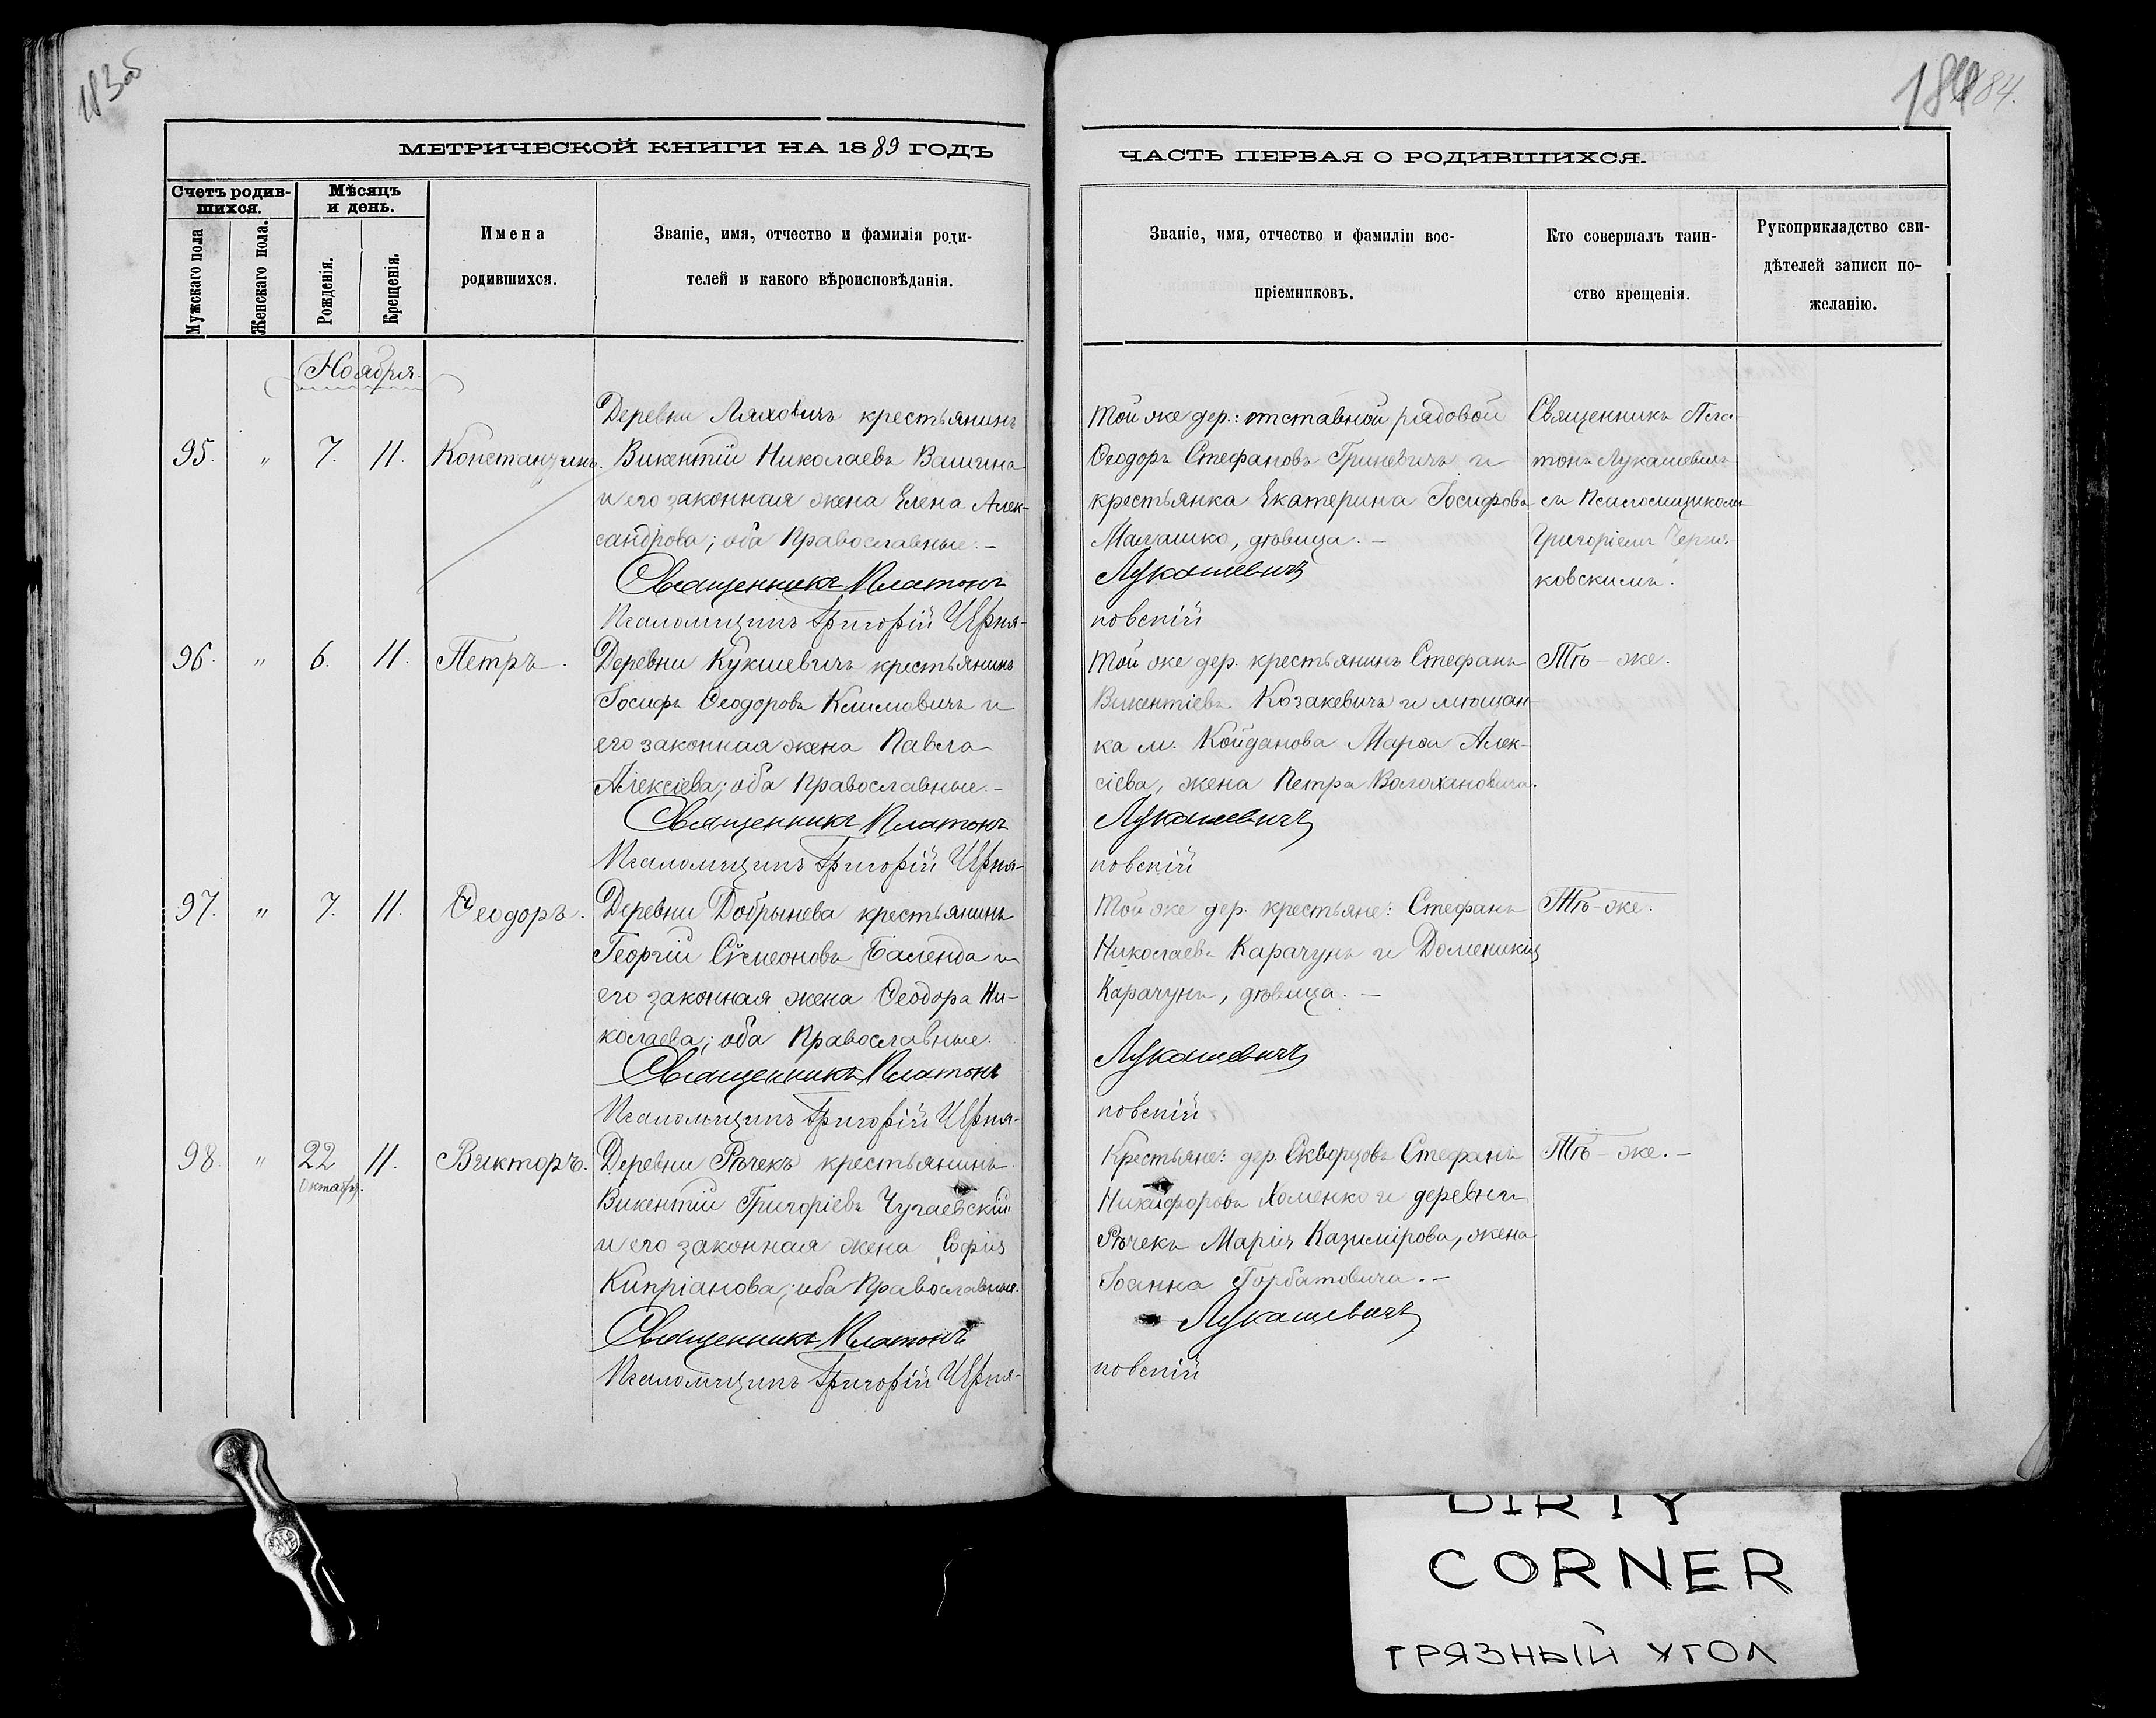 183об
184
184.
МЕТРИЧЕСКОЙ КНИГИ НА 1889 ГОДЪ
Счетъ родив-
шихся.
Мѣсяцъ
и день.
Мужскаго пола
Женскаго пола.
Рожденія.
Крещенія.
Имена
родившихся.
Званіе, имя, отчество и фамилія роди-
телей и какого вѣроисповѣданія.
Ноября.
95. " 7. 11. Константинъ.
Деревни Ляховичъ крестьянинъ
Викентій Николаевъ Вашина
и его законная жена Елена Алек-
сандрова; оба Православные.-
Священникъ Платонъ
Псаломщикъ Григорій Черня-
96. " 6. 11. Петръ.
Деревни Кукшевичъ крестьянинъ
Іосифъ Ѳеодоровъ Климовичъ и
его законная жена Павла
Алексіева; оба Православные.-
Священникъ Платонъ
Псаломщикъ Григорій Черня-
97. " 7. 11. Ѳеодоръ.
Деревни Добрынева крестьянинъ
Георгій Сѵмеоновъ Баленда и
его законная жена Ѳеодора Ни-
колаева; оба Православные.
Священникъ Платонъ
Псаломщикъ Григорій Черня-
98. " 22 октября. 11. Викторъ.
Деревни Рѣчекъ крестьянинъ
Викентій Григоріевъ Чугаевскій
и его законная жена Софія
Кипріанова; оба Православные.
Священникъ Платонъ
Псаломщикъ Григорій Черня-
ЧАСТЬ ПЕРВАЯ О РОДИВШИХСЯ.
Званіе, имя, отчество и фамиліи вос-
пріемниковъ.
Кто совершалъ таин-
ство крещенія.
Рукоприкладство сви-
дѣтелей записи по-
желанію.
Той же дер.: отставной рядовой
Ѳеодоръ Стефановъ Гриневичъ и
крестьянка Екатерина Іосифова
Малашко, дѣвица.-
Лукашевичъ
ковскій
Священникъ Пла-
тонъ Лукашевичъ
съ Псаломщикомъ
Григоріемъ Черня-
ковскимъ.
Той же дер. крестьянинъ Стефанъ
Викентіевъ Козакевичъ и мѣщан-
ка м. Койданова Марѳа Алек-
сіева, жена Петра Волохановича.
Лукашевичъ
ковскій
Тѣ-же.
Той же дер. крестьяне: Стефанъ
Николаевъ Карачунъ и Доменикія
Карачунъ, дѣвица.-
Лукашевичъ
ковскій
Тѣ-же.
Крестьяне: дер. Скворцовъ Стефанъ
Никифоровъ Хоменко и деревни
Рѣчекъ Марія Казимірова, жена
Іоанна Горбатовича.-
Лукашевичъ
ковскій
Тѣ-же.-
DIRTY
CORNER
ГРЯЗНЫЙ УГОЛ